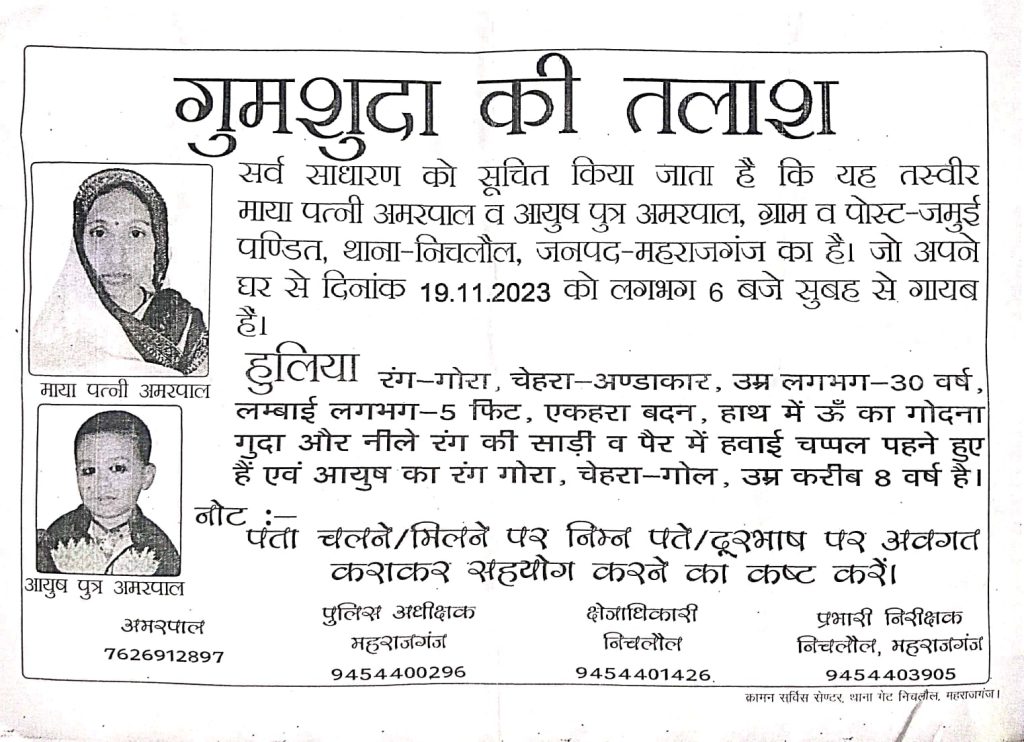 गुमशुदा की तलाश
सर्व साधारण को सूचित किया जाता है कि यह तस्वीर
माया पत्नी अमरपाल व आयुष पुत्र अमरपाल, ग्राम व पोस्ट-जमुई
पण्डित, थाना-निचलौल, जनपद-महराजगंज का है। जो अपने
घर से दिनांक 19.11.2023 को लगभग 6 बजे सुबह से गायब
है।
माया पत्नी अमरपाल
हुलिया रंग-गोरा, चेहरा-अण्डाकार, उम्र लगभग-30 वर्ष,
लम्बाई लगभग-5 फिट, एकहरा बदन, हाथ में ऊँ का गोदना
गुदा और नीले रंग की साड़ी व पैर में हवाई चप्पल पहने हुए
हैं एवं आयुष का रंग गोरा, चेहरा-गोल, उम्र करीब 8 वर्ष है।
आयुष पुत्र अमरपाल
नोट :-
पता चलने/मिलने पर निम्न पते/दूरभाष पर अवगत
कराकर सहयोग करने का कष्ट करें।
अमरपाल
7626912897
पुलिस अधीक्षक
महराजगंज
9454400296
क्षेत्राधिकारी
निचलौल
9454401426
प्रभारी निरीक्षक
निचलौल, महराजगंज
9454403905
कामन सर्विस सेण्टर, थाना गेट निचलौल, महराजगंज।